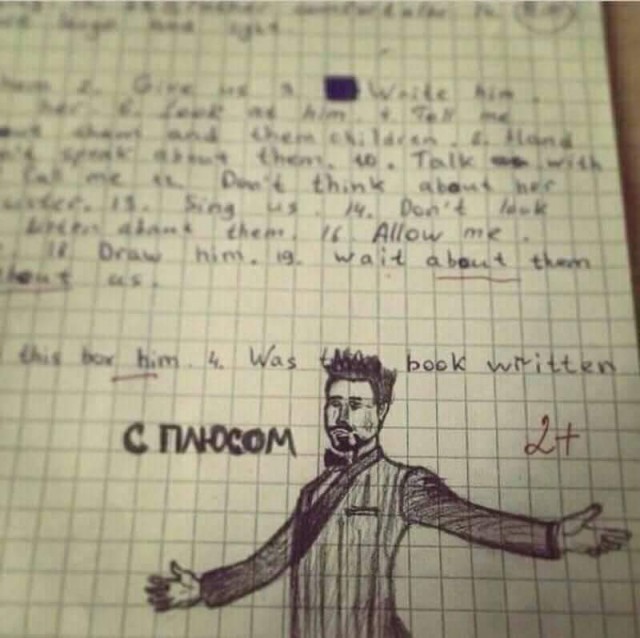 large and light
2. Give us 3. Write him.
her. 6. Look at him. 7. Tell me
about them and them children. 8. Hand
n't speak about them. 10. Talk with
Call me 12. Don't think about her
13. Sing us. 14. Don't look
listen about them. 16. Allow me.
18. Draw him. 19. wait about them
about us.
this box him. 4. Was book written
С ПЛЮСОМ
2+